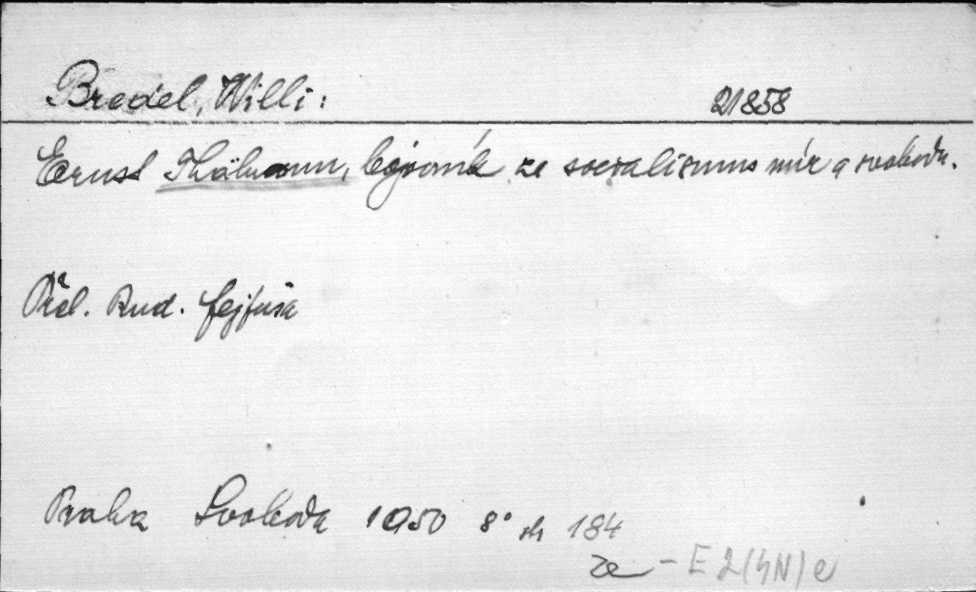 Bredel, Willi: 21858
Ernst Thälmann, bojovník za socialismus mír a svobodu.
Přel. Rud. Vejfuša
Praha Svoboda 1950 8° str 184
ze - E 2(4N)e